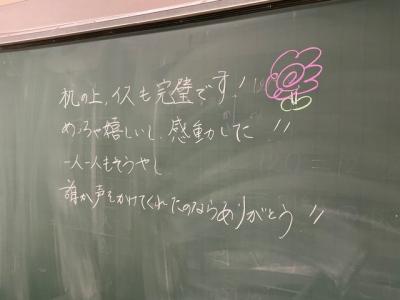 机の上、イスも完璧です!
めっちゃ嬉しいし、感動した!!
一人一人もそうやし
誰か声をかけてくれたのならありがとう!!